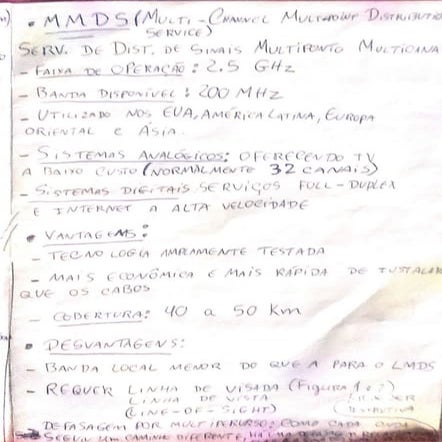 • MMDS (MULTI-CHANNEL MULTIPOINT DISTRIBUTION
SERVICE)
SERV. DE DIST. DE SINAIS MULTIPONTO MULTICANA
- FAIXA DE OPERAÇÃO: 2.5 GHz
- BANDA DISPONÍVEL: 200 MHz
- UTILIZADO NOS EUA, AMÉRICA LATINA, EUROPA
ORIENTAL E ÁSIA.
- SISTEMAS ANALÓGICOS: OFERECENDO TV
A BAIXO CUSTO (NORMALMENTE 32 CANAIS)
- SISTEMAS DIGITAIS SERVIÇOS FULL-DUPLEX
E INTERNET A ALTA VELOCIDADE
• VANTAGENS:
- TECNOLOGIA AMPLAMENTE TESTADA
- MAIS ECONÔMICA E MAIS RÁPIDA DE INSTALAR
QUE OS CABOS
- COBERTURA: 40 a 50 Km
• DESVANTAGENS:
- BANDA LOCAL MENOR DO QUE A PARA O LMDS
- REQUER LINHA DE VISADA (Figura 1 e 2)
LINHA DE VISTA
(LINE-OF-SIGHT)
DEFASAGEM POR MULTIPERCURSO: COMO CADA ONDA
SEGUIU UM CAMINHO DIFERENTE, HÁ UMA